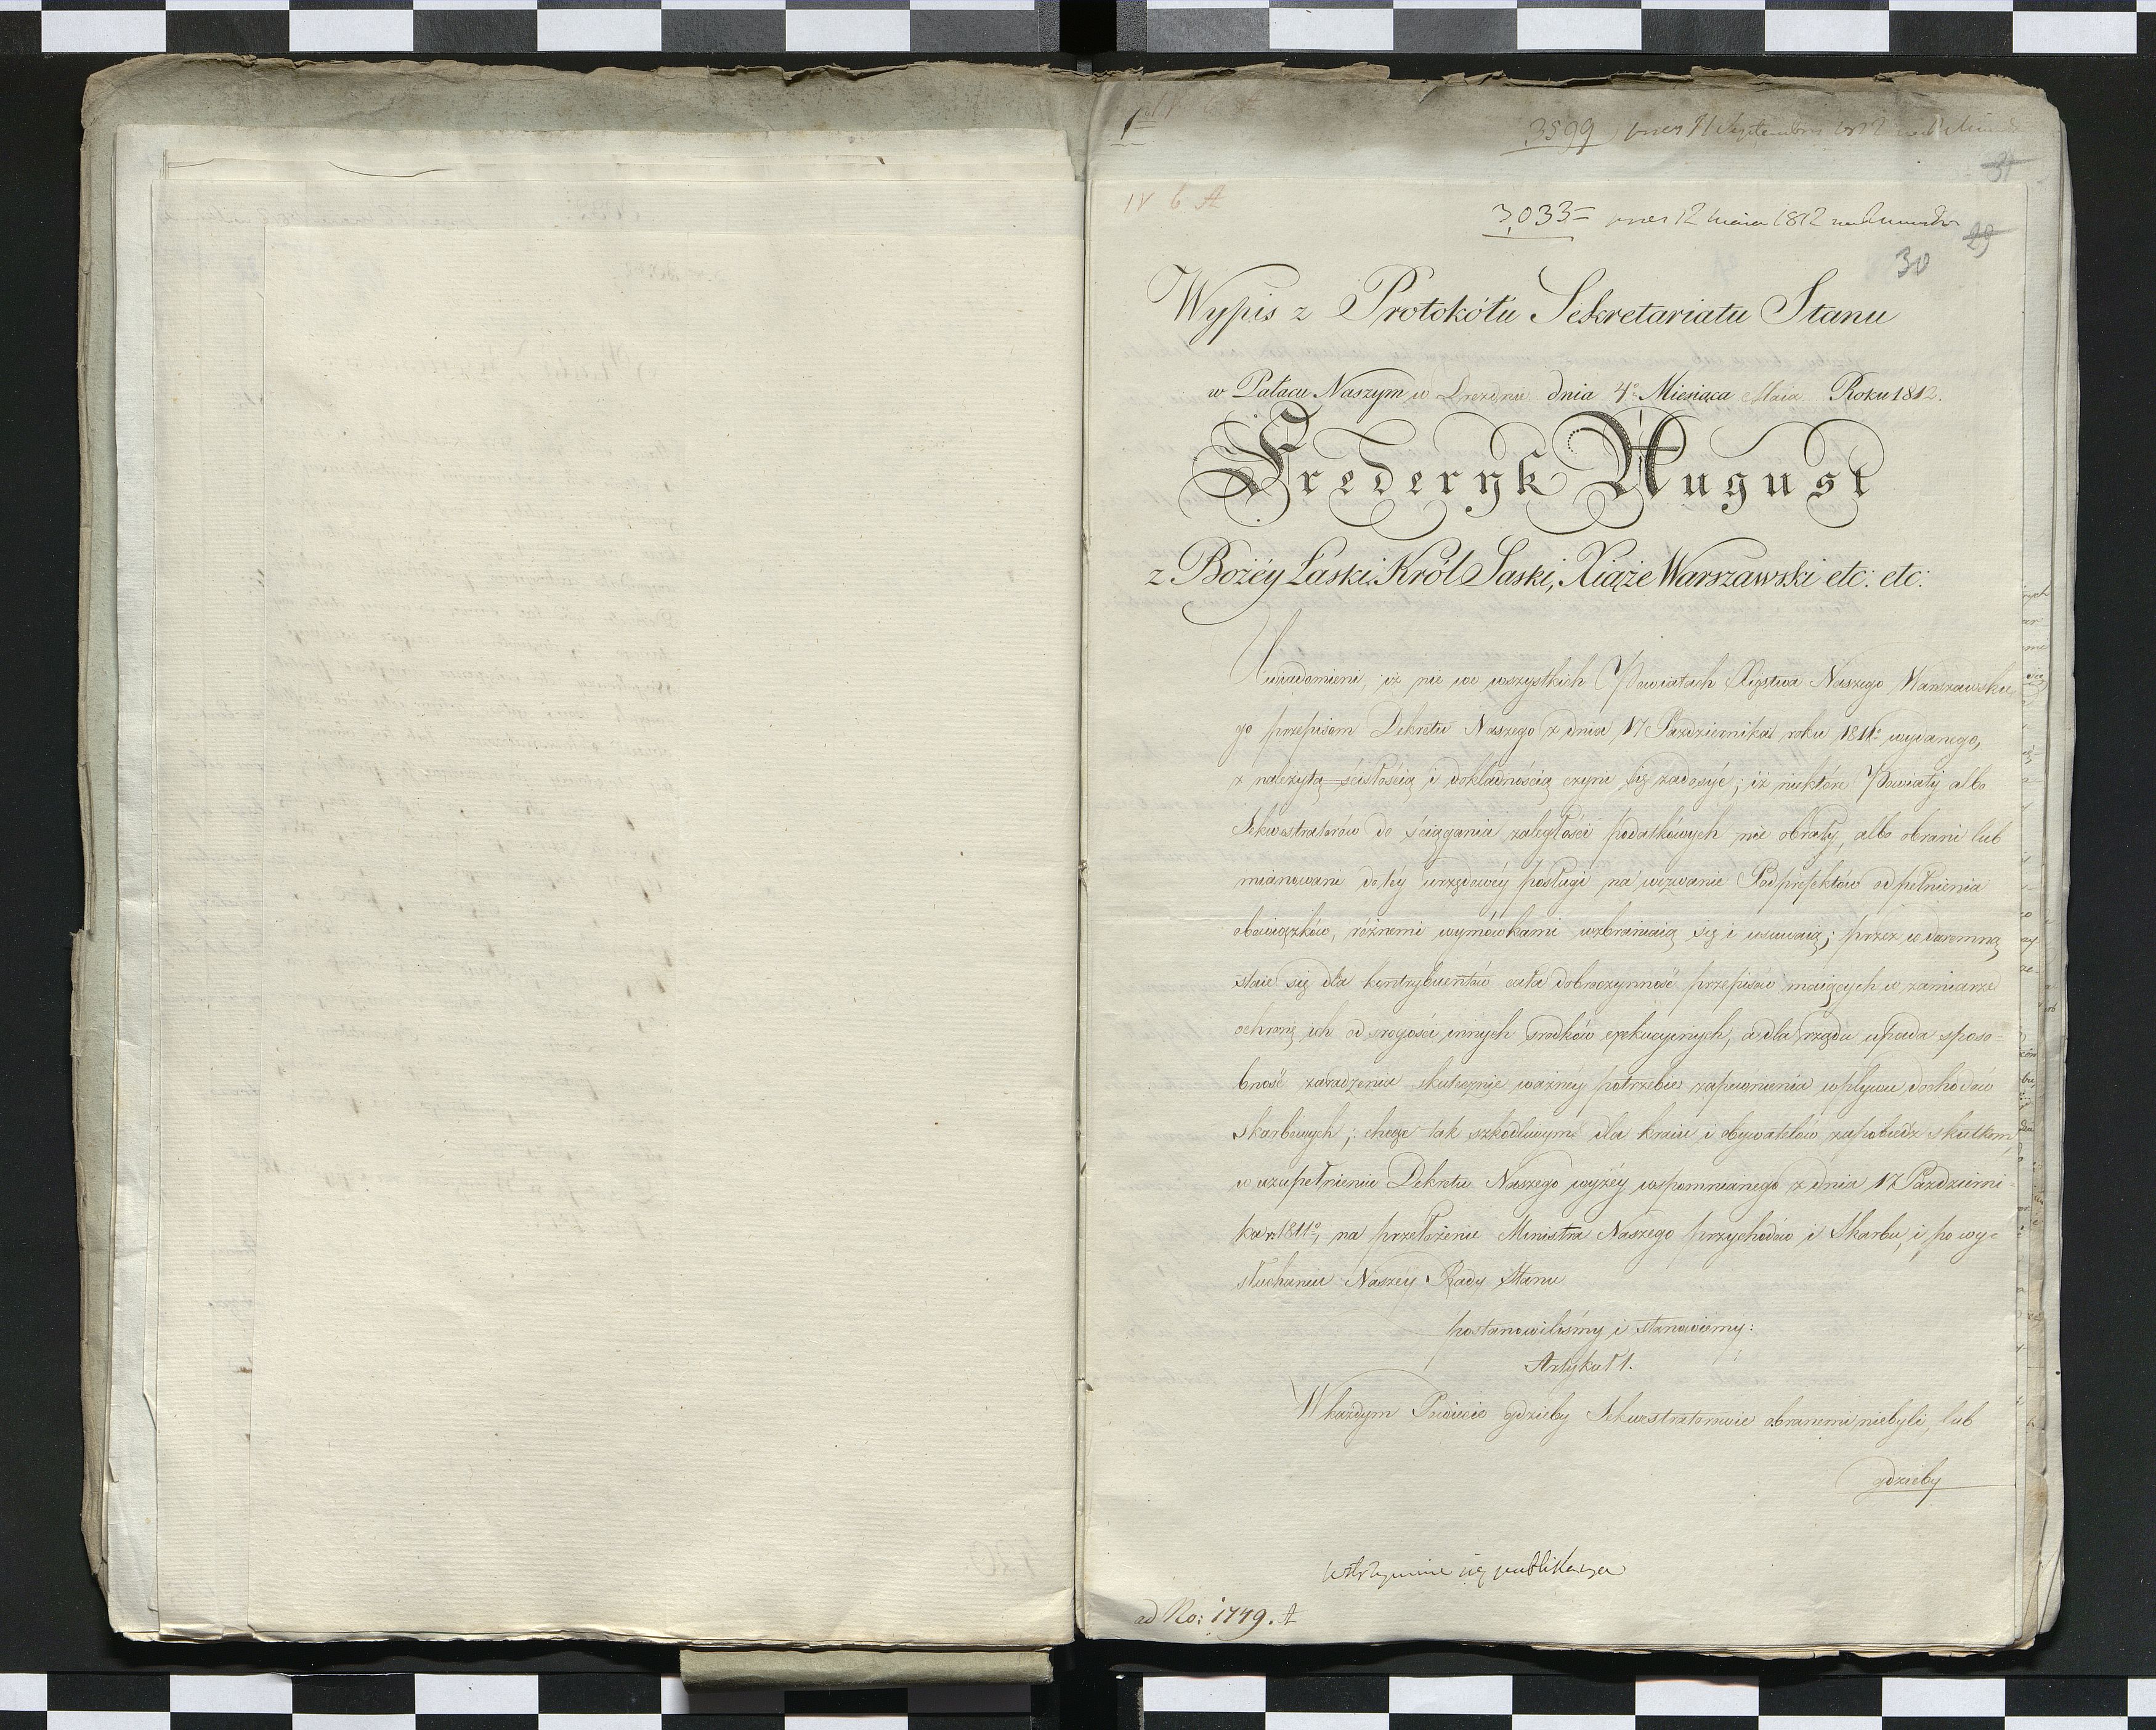 3599
31
IV 6 A
3033 12 maia 1812
29
30
Wypis z Protokółu Sekretariatu Stanu
w Pałacu Naszym w Dreznie dnia 4º Miesiąca Maia Roku 1812.
Frederyk August
z Bożéy Łaski Król Saski, Xiąże Warszawski etc: etc:
Uwiadomieni, iż nie we wszystkich Powiatach Xięstwa Naszego Warszawskie
go przepisom Dekretu Naszego z dnia 17 Października roku 1811º wydanego,
z należytą ścisłością i dokładnością czyni się zadosyć; iż niektóre Powiaty albo
Sekwestratorów do ściągania zaległości podatkowych nie obrały, albo obrani lub
mianowani do téy urzędowéy posługi na wezwanie Podprefektów od pełnienia
obowiązków, różnemi wymówkami wzbraniaią się i usuwaią; przez co daremną
staie się dla kontrybuentów cała dobroczynność przepisów maiących w zamiarze
ochronę ich od srogości innych srodków exekucyinych, a dla rządu upada sposo=
bność zaradzenia skutecznie ważnéy potrzebie zapewnienia wpływu dochodów
skarbowych; chcąc tak szkodliwym dla kraiu i obywatelów zapobiedz skutkom,
w uzupełnieniu Dekretu Naszego wyżéy wspomnianego z dnia 17 Październi=
ka r: 1811º, na przełożenie Ministra Naszego Przychodów i Skarbu, i po wy=
słuchaniu Naszéy Rady Stanu
postanowiliśmy i stanowiemy:
Artykuł 1.
W każdym Powiecie gdzieby Sekwestratorowie obranemi niebyli, lub
gdzieby
wstrzymuie się publikacya
ad No: 1749. A